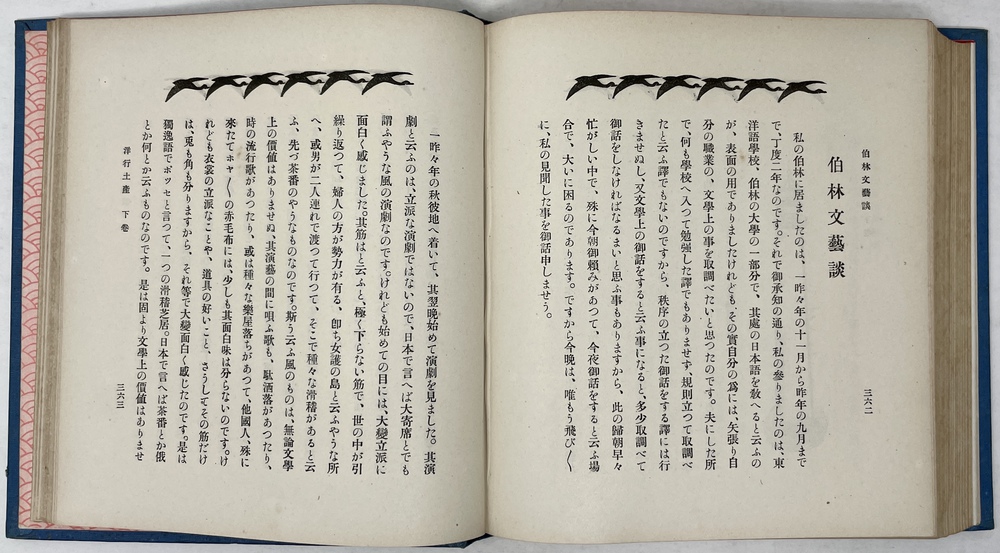 伯林文藝談
三六二
伯林文藝談
私の伯林に居ましたのは、一昨々年の十一月から昨年の九月まで
で、丁度二年なのです。それで御承知の通り、私の參りましたのは、東
洋語學校、伯林の大學の一部分で、其處の日本語を敎へると云ふの
が、表面の用でありましたけれども、その實自分の爲には、矢張り自
分の職業の、文學上の事を取調べたいと思つたのです。夫にした所
で、何も學校へ入つて勉强した譯でもありませず、規則立つて取調べ
たと云ふ譯でもないのですから、秩序の立つた御話をする譯には行
きませぬし、又文學上の御話をすると云ふ事になると、多少取調べて
御話をしなければなるまいと思ふ事もありますから、此の歸朝早々
忙がしい中で、殊に今朝御賴みがあつて、今夜御話をすると云ふ場
合で、大いに困るのであります。ですから今晚は、唯もう飛び〳〵
に、私の見聞した事を御話申しませう。
一昨々年の秋彼地へ着いて、其翌晚始めて演劇を見ました。其演
劇と云ふのは、立派な演劇ではないので、日本で言へば大寄席とでも
謂ふやうな風の演劇なのです。けれども始めての目には、大變立派に
面白く感じました。其筋はと云ふと、極く下らない筋で、世の中が引
繰り返つて、婦人の方が勢力が有る、卽ち女護の島と云ふやうな所
へ、或男が二人連れで渡つて行つて、そこで種々な滑稽があると云
ふ、先づ茶番のやうなものなのです。斯う云ふ風のものは、無論文學
上の價値はありませぬ、其演藝の間に唄ふ歌も、駄洒落があつたり、
時の流行歌があつたり、或は種々な樂屋落ちがあつて、他國人、殊に
來たてホヤ〳〵の赤毛布には、少しも其面白味は分らないのです。け
れども衣裳の立派なことや、道具の好いこと、さうしてその筋だけ
は、兎も角も分りますから、それ等で大變面白く感じたのです。是は
獨逸語でポッセと言つて、一つの滑稽芝居。日本で言へば茶番とか俄
とか何とか云ふものなのです。是は固より文學上の價値はありませ
洋行土產 下卷
三六三